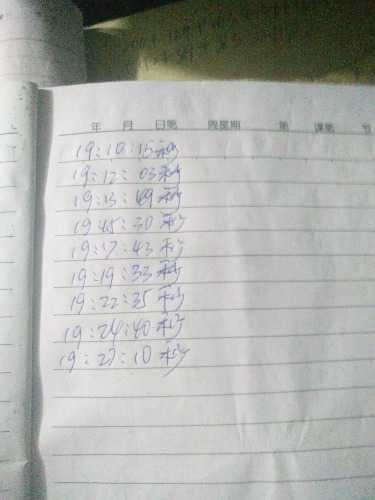 年 月 日第 周星期 第 课第 节
19:10:15秒
19:12:03秒
19:13:49秒
19:15:30秒
19:17:43秒
19:19:33秒
19:22:35秒
19:24:40秒
19:27:10秒